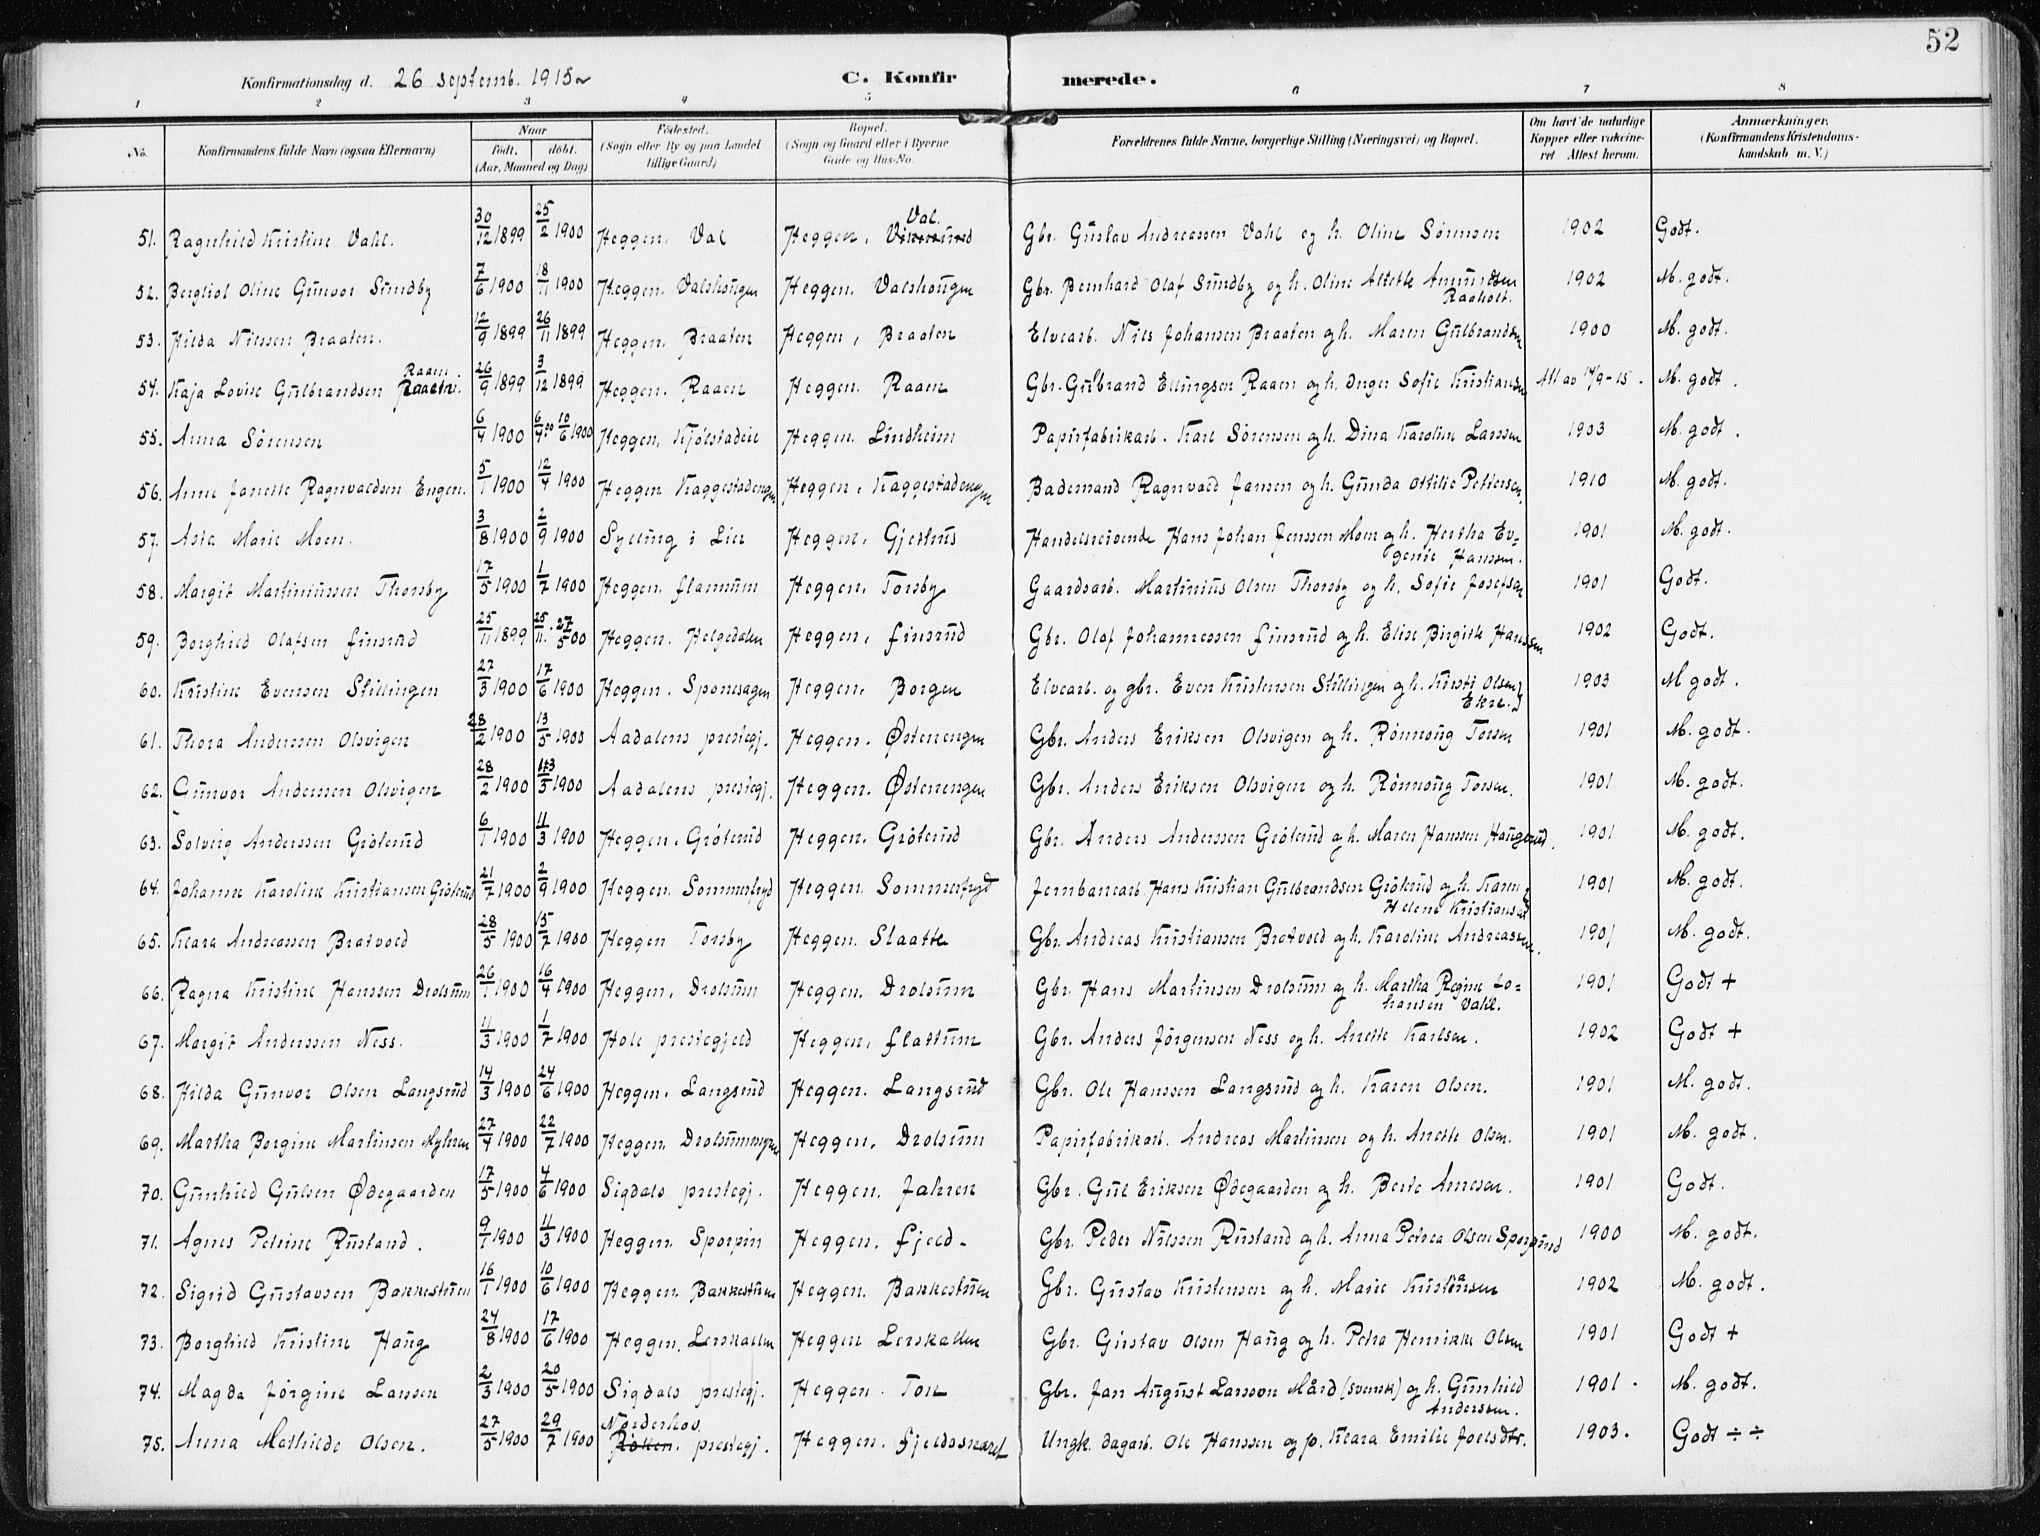 52
Konfirmationsdag d. 26 septemb. 1915
C. Konfir merede.
1 2 3 4 5 6 7 8
No.
Konfirmandens fulde Navn (ogsaa Efternavn)
Naar
født. døbt.
(Aar, Maaned og Dag)
Fødested.
(Sogn eller By og paa Landet
tillige Gaard)
Bopæl.
(Sogn og Gaard eller i Byerne
Gade og Hus-No.
Forældrenes fulde Navne, borgerlige Stilling (Næringsvei) og Bopæl.
Om havt de naturlige
Kopper eller vakcine-
ret Attest herom.
Anmærkninger.
(Konfirmandens Kristendoms-
kundskab m. V.)
51. Ragnhild Kristine Vahl. 30/12 1899 25/2 1900 Heggen, Val Heggen, Vikersund Val. Gbr. Gustav Andreassen Vahl og h. Oline Sørensen 1902 Godt.
52. Bergliot Oline Gunvor Sundby 7/6 1900 18/11 1900 Heggen. Valshougen Heggen. Valshougen Gbr. Bernhard Olaf Sundby og h. Oline Amundsen Raaholt. 1902 M. godt.
53. Hilda Nilssen Braaten. 12/9 1899 26/11 1899 Heggen. Braaten Heggen, Braaten Elvearb. Nils Johansen Braaten og h. Maren Gulbrandsen 1900 M. godt.
54. Kaja Lovise Gulbrandsen Raaen 26/9 1899 3/12 1899 Heggen. Raaen Heggen. Raaen Gbr. Gulbrand Ellingsen Raaen og h. Inger Sofie Kristiansen Att av 14/9-15. M. godt.
55. Anna Sørensen 6/4 1900 6/4 00 10/6 1900 Heggen, Kjølstadeie Heggen. Lindheim Papirfabrikarb. Karl Sørensen og h. Dina Karoline Larssen 1903 M. godt.
56. Anne Janette Ragnvaldsen Engen. 5/1 1900 12/4 1900 Heggen Kaggestadengen Heggen. Kaggestadengen Bademand Ragnvald Jansen og h. Gunda Otilie Pettersen 1910 M. godt.
57. Asta Marie Moen. 3/8 1900 2/9 1900 Sylling i Lier Heggen, Gjestus Handelsreisende Hans Johan Jenssen Moen og h. Hertha Ev=
genie Hanssen. 1901 M. godt.
58. Margit Martiniussen Thorsby 17/5 1900 1/7 1900 Heggen. flannum Heggen. Torsby Gaardsarb. Martinius Olsen Thorsby og h. Sofie Josefsen 1901 Godt.
59. Borghild Olafsen finsrud 25/11 1899 25/11. 27/5 00 Heggen. Helgedalen Heggen, finsrud Gbr. Olaf Johannessen finsrud og h. Elise Birgitte Hanssen 1902 Godt.
60. Kristine Evensen Stillingen 27/3 1900 17/6 1900 Heggen. Sponesagen Heggen. Borgen Elvearb. og gbr. Even Kristensen Stillingen og h. Kirsti Olsen
Ekre. 1903 M godt.
61. Thora Anderssen Olsvigen 28/2 1900 13/5 1900 Aadalens prestegj. Heggen. Østenengen Gbr. Anders Eriksen Olsvigen og h. Rønnoug Torsen 1901 M. godt.
62. Gunvor Anderssen Olsvigen 28/2 1900 13/5 1900 Aadalens prestegj. Heggen. Østenengen Gbr. Anders Eriksen Olsvigen og h. Rønnoug Torsen. 1901 M. godt.
63. Solveig Anderssen Grøterud 6/1 1900 11/3 1900 Heggen. Grøterud Heggen. Grøterud Gbr. Anders Anderssen Grøterud og h. Maren Hansen Haugerud. 1901 M. godt.
64. Johanne Karoline Kristiansen Grøterud 21/7 1900 2/9 1900 Heggen. Sommerfryd Heggen. Sommerfryd Jernbanearb. Hans Kristian Gulbrandsen Grøterud og h. Karen
Helene Kristiansen 1901 M. godt.
65. Klara Andreassen Bratvold 28/5 1900 15/7 1900 Heggen Torsby Heggen. Slaatte Gbr. Andreas Kristiansen Bratvold og h. Karoline Andreassen. 1901 M. godt.
66. Ragna Kristine Hanssen Drolsum 26/1 1900 16/4 1900 Heggen. Drolsum Heggen. Drolsum Gbr. Hans Martinsen Drolsum og h. Martha Regine Jo=
hansen Vahl. 1901 Godt +
67. Margit Anderssen Ness. 11/3 1900 1/7 1900 Hole prestegjeld Heggen, flattum Gbr. Anders Jørgensen Ness og h. Anette Karlsen. 1902 Godt +
68. Hilda Gunvor Olsen Langsrud 14/3 1900 24/6 1900 Heggen. Langsrud Heggen. Langsrud Gbr. Ole Hanssen Langsrud og h. Karen Olsen. 1901 M. godt.
69. Martha Bergine Martinsen Myhren 27/4 1900 22/7 1900 Heggen. Drolsummyren Heggen. Drolsum Papirfabrikarb. Andreas Martinsen og h. Anette Olsen. 1901 M. godt.
70. Gunhild Gulsen Ødegaarden 17/5 1900 4/6 1900 Sigdals prestegj. Heggen. Jahren Gbr. Gul Eriksen Ødegaarden og h. Berte Arnesen. 1901 Godt.
71. Agnes Petrine Rustand. 9/1 1900 11/3 1900 Heggen. Sporpin Heggen. fjeld- Gbr. Peder Nilssen Rustand og h. Anna Petrea Olsen Sporpind 1900 M. godt.
72. Sigrid Gustavsen Bakkestuen 16/1 1900 10/6 1900 Heggen. Bakkestuen Heggen. Bakkestuen Gbr. Gustav Kristensen og h. Marie Kristiansen 1902 M. godt.
73. Borghild Kristine Haug 24/8 1900 17/6 1900 Heggen. Lerskallen Heggen Lerskallen Gbr. Gustav Olsen Haug og h. Petra Henrikke Olsen 1901 Godt +
74. Magda Jørgine Lansen 2/3 1900 20/5 1900 Sigdals prestegj. Heggen. Ton Gbr. Jan August Larsson Mård (svensk) og h. Gunhild
Anderssen. 1901. M. godt.
75. Anna Mathilde Olsen. 27/5 1900 29/7 1900 Norderhov Røken. prestegj. Heggen. fjeldssnaret Ungk. dagarb. Ole Hanssen og p. Klara Emilie Joelsdtr. 1903. Godt ÷ ÷